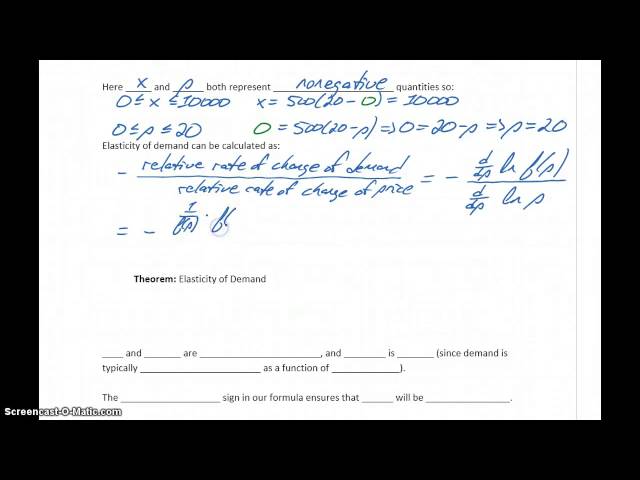 Here x and p both represent nonegative quantities so:
0 ≤ x ≤ 10000 x = 500(20 - 0) = 10000
0 ≤ p ≤ 20 0 = 500(20-p) => 0 = 20-p => p = 20
Elasticity of demand can be calculated as:
- relative rate of change of demand / relative rate of change of price = - d/dp ln f(p) / d/dp ln p
= - 1/f(p) · f(
Theorem: Elasticity of Demand
____ and ______ are ____________________, and ______ is ______ (since demand is
typically ____________________ as a function of ____________).
The ________________ sign in our formula ensures that _____ will be ______________.
Screencast-O-Matic.com